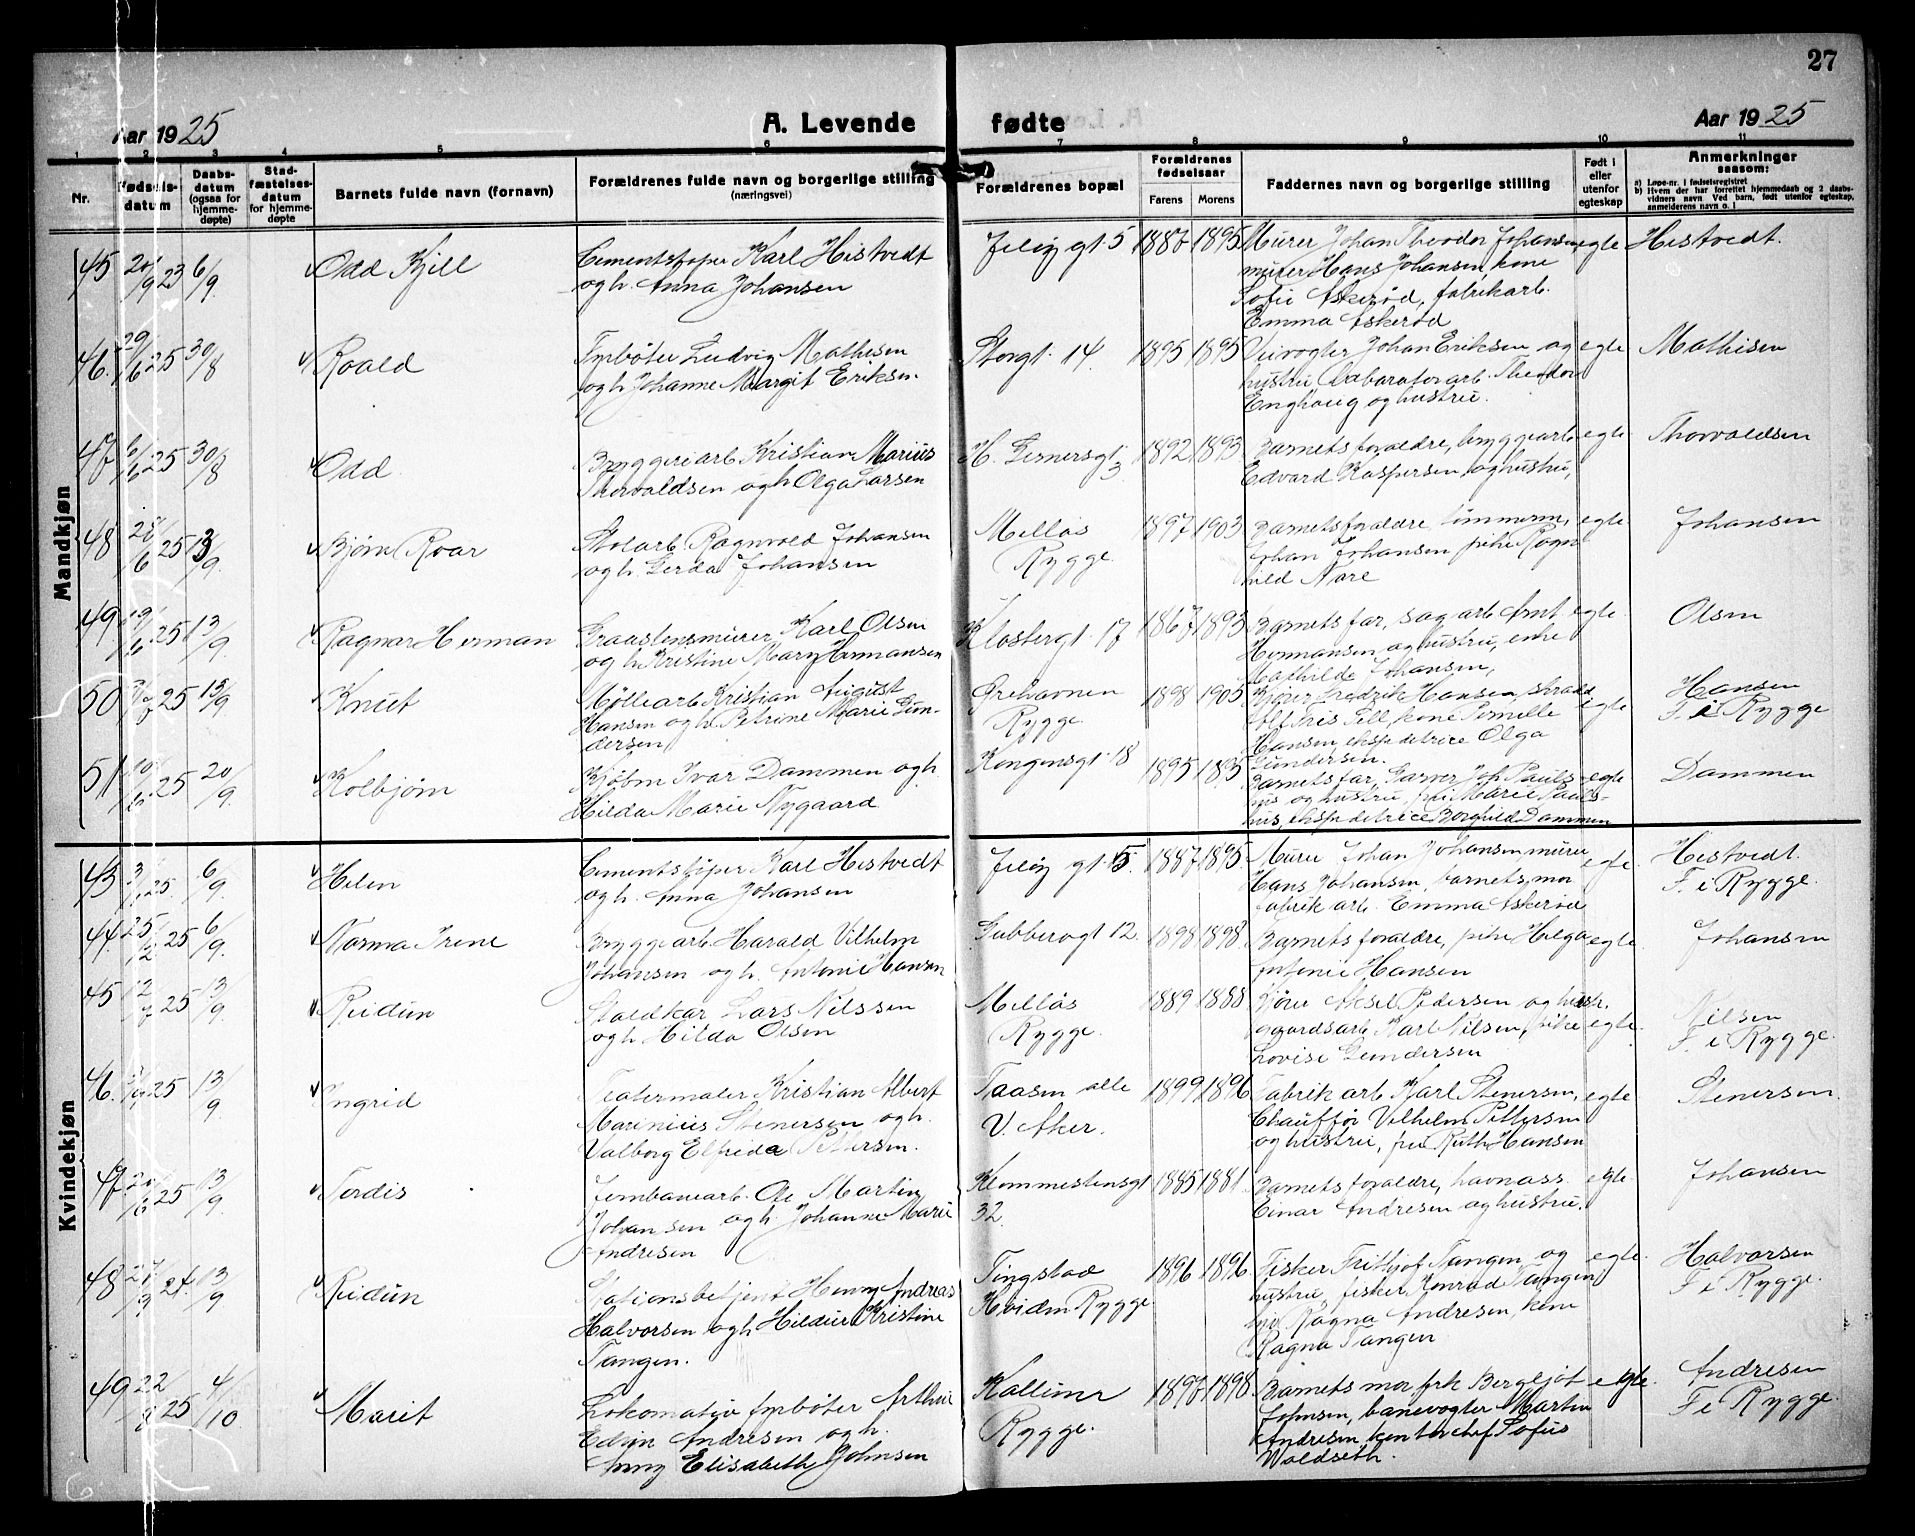 27
Aar 1925
A. Levende
fødte
Aar 1925
1 2 3 4 5 6 7 8 9 10 11
Nr.
Fødsels-
datum
Daabs-
datum
(ogsaa for
hjemme-
døpte)
Stad-
fæstelses-
datum
for hjemme-
døpte
Barnets fulde navn (fornavn)
Forældrenes fulde navn og borgerlige stilling
(næringsvei)
Forældrenes bopæl
Forældrenes
fødselsaar
Farens Morens
Faddernes navn og borgerlige stilling
Født i
eller
utenfor
egteskap
Anmerkninger
saasom:
a) Løpe-nr. i fødselsregistret
b) Hvem der har forrettet hjemmedaab og 2 daabs-
vidners navn. Ved barn, født utenfor egteskap,
anmelderens navn o. l.
Mandkjøn
45 6/9 Odd Kjell
Cementstøper Karl Histvedt
og h. Anna Johansen
Jeløy gt. 5 1887 1895
Murer Johan Theodor Johansen
murer Hans Johansen, kone
Sofie Askerød, fabrikarb.
Emma Askerød
egte Histvedt.
46. 29/6 25 30/8 Roald
Fyrbøter Ludvig Mathisen
og h. Johanne Margit Eriksen.
Storgt. 14. 1895 1895
Veivogter Johan Eriksen og
hustru, Laboratorarb. Theodor
Enghaug og hustru.
egte Mathisen
47 6/6 25 30/8 Odd
Bryggeriarb. Kristian Marius
Thorvaldsen og h. Olga Larsen
H. Gernersgt. 3 1892 1893
Barnets forældre, bryggiarb.
Edvard Kaspersen og hustru,
egte Thorvaldsen
48 25/6 25 13/9 Bjørn Roar
Stolarb. Ragnvald Johansen
og h. Gerda Johansen
Melløs
Rygge. 1897 1903
Barnets forældre, tømmerm.
Johan Johansen, pike Ragn-
hild Nare
egte. Johansen
49 19/6 25 13/9 Ragnar Herman
Graastensmurer Karl Olsen
og h. Kristine Mary Hermansen
Klostergt. 17 1867 1893
Barnets far, sagarb. Arnt
Hermansen og hustru, enke
Mathilde Johansen,
egte. Olsen
50 25 13/9 Knut
Møllearb. Kristian August
Hansen og h. Petrine Marie Gun-
dersen
Ørehavnen
Rygge 1898 1905
Kjører Fredrik Hansen,
kone Pernelle
Hansen, ekspeditrice Olga
Gundersen.
egte Hansen
F. i Rygge
51 10/6 25 20/9. Kolbjørn
Kjøbm. Ivar Dammen og h.
Hilda Marie Nygaard
Kongensgt. 18 1895 1895
Barnets far, Garver Joh. Pauls-
hus og hustru, frk. Marie Pauls-
hus, ekspeditrice Borghild Dammen
egte Dammen
Kvindekjøn
43 3/1 25. 6/9. Helen
Cementstøper Karl Histvedt
og h. Anna Johansen
Jeløy gt. 5. 1887 1895.
Murer Johan Johansen, murer
Hans Johansen, barnets mor
fabrikarb. Emma Askerød
egte. Histvedt.
F. i Rygge.
44. 25/2 25 6/9. Norma Irene
Bryggeriarb. Harald Vilhelm
Johansen og h. Antonie Hansen
Gubberogt 12. 1898 1898.
Barnets forældre, pike Helga
Antonie Hansen
egte. Johansen
45 12/7 25 13/9. Reidun
Staldkar Lars Nilssen
og h. Hilda Olsen
Melløs
Rygge. 1889 1888
Kjører Aksel Pedersen og hustr.
gaardsarb. Karl Nilsen, pike
Lovise Gundersen
egte. Nilsen
F. i Rygge.
46. 25 13/9 Ingrid
Teatermaler Kristian Albert
Marinius Stenersen og h.
Valborg Elfrida Pettersen.
Taasen alle
V. Aker. 1899 1896
Fabrikarb. Karl Stenersen,
Chauffør Vilhelm Pettersen
og hustru, frk. Ruth Hansen
egte Stenersen.
47 25 13/9. Tordis
Jernbanearb. Ole Martin
Johansen og h. Johanne Marie
Andresen
Klommestensgt
32. 1885 1881.
Barnets forældre, havnass.
Einar Andresen og hustru.
egte Johansen
48 24. 13/9 Reidun
Stationsbetjent Henry Andreas
Halvorsen og h. Hildur Kristine
Tangen.
Tingstad
Hviden Rygge. 1896 1896
Fisker Frithjof Tangen og
hustru, fisker Konrad Tangen,
Ragna Andresen, kone
Ragna Tangen
egte. Halvorsen
F. i Rygge.
49 22/8 25 4/10 Marit
Lokomotivfyrbøter Arthur
Edvin Andresen og h.
Anny Elisabeth Johnsen
Kallum
Rygge. 1897 1898
Barnets mor, frk. Bergljot
Johnsen, banevogter Martin
Andresen, kontorchef Sofus
Woldseth.
egte. Andresen
F. i Rygge.